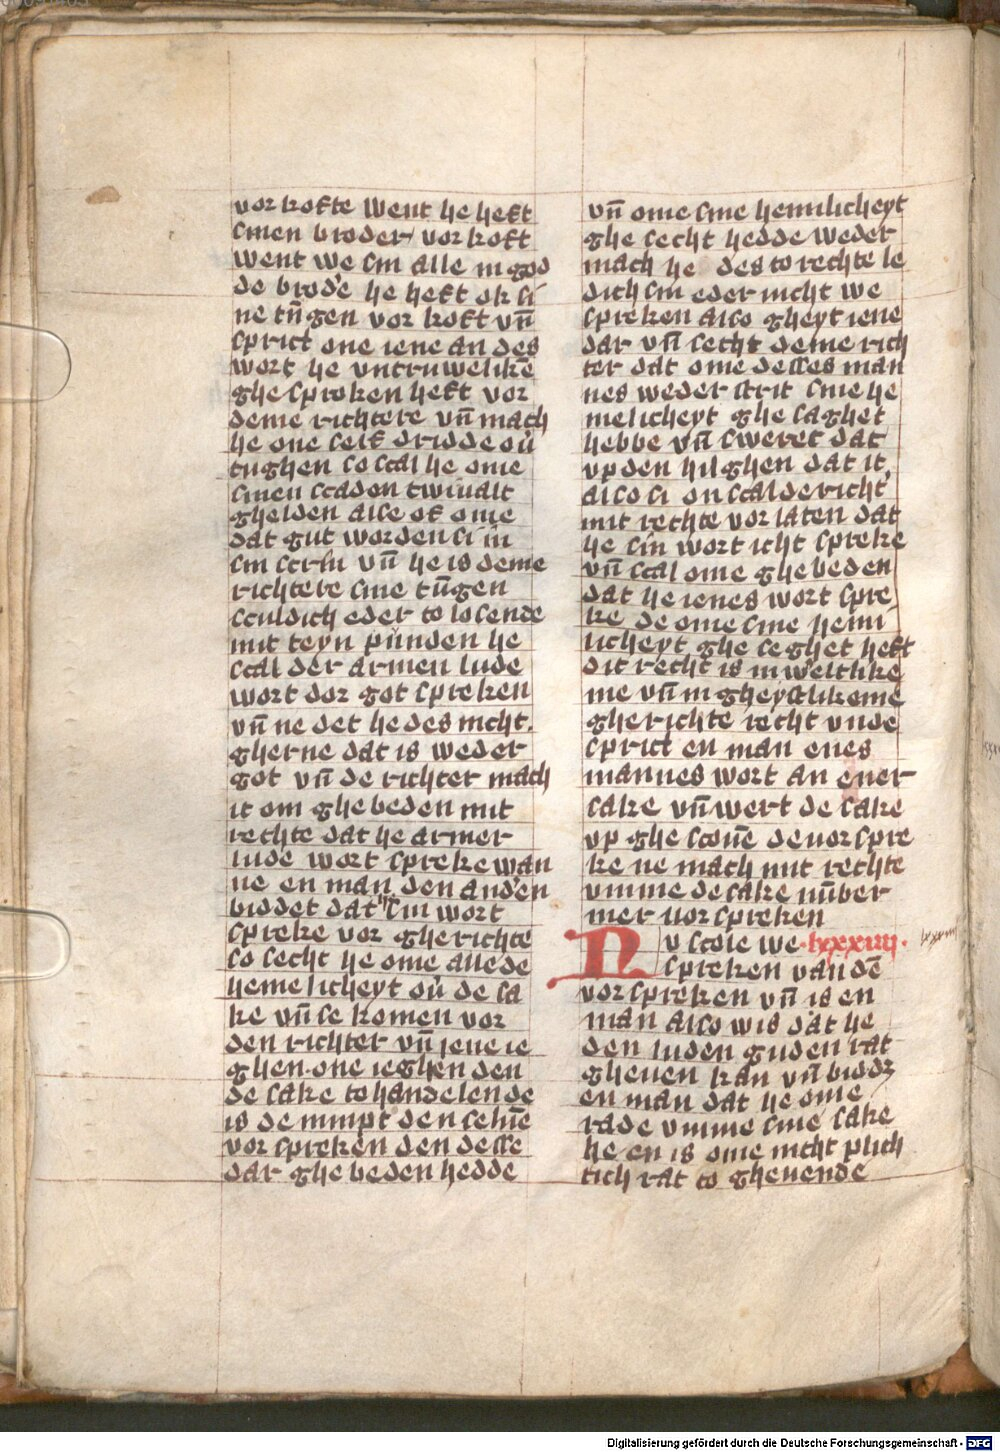 vor kofte went he heft
sinen broder vor koft
went we sin alle in god
de brode he heft ok si
ne tūgen vor koft vn̄
sprict one iene an des
wort he vntruwelikē
ghe sproken heft vor
deme richtere vn̄ mach
he one self dridde oū
tughen so scal he ome
sinen scaden twiualt
ghelden alse of ome
dat gut worden si in
sin scrin vn̄ he is deme
richtere sine tūgen
sculdich eder to losende
mit teyn punden he
scal der armen lude
wort dor got spreken
vn̄ ne det he des nicht
gherne dat is weder
got vn̄ de richter mach
it om ghe beden mit
rechte dat he armer
lude wort spreke wan
ne en man den andēn
biddet dat sin wort
spreke vor gherichte
so secht he ome alle de
hemelicheyt oū de sa
ke vn̄ se komen vor
den richter vn̄ iene ie
ghen one ieghen den
de sake to handelende
is de nimpt den seluē
vor spreken den desse
dar ghe beden hedde
vn̄ ome sine hemilicheyt
ghe secht hedde weder
mach he des to rechte le
dich sin eder nicht we
spreken also gheyt iene
dar vn̄ secht deme rich
ter dat ome desses man
nes weder strit sine he
melicheyt ghe saghet
hebbe vn̄ sweret dat
vp den hilghen dat it
also si on scal de richt
mit rechte vor laten dat
he sin wort icht spreke
vn̄ scal ome ghe beden
dat he ienes wort spre
ke de ome sine hemi
licheyt ghe seghet heft
dit recht is in weltlike
me vn̄ in gheystlikeme
gherichte recht vnde
sprict en man enes
mannes wort an ener
sake vn̄ wert de sake
vp ghe scouē de vor spre
ke ne mach mit rechte
vmme de sake nūber
mer vor spreken
Nv scole we lxxxiiii
spreken van dē
vor spreken vn̄ is en
man also wis dat he
den luden guden rat
gheuen kan vn̄ biddz
en man dat he ome
rade vmme sine sake
he en is ome nicht plich
tich rat to gheuende
Digitalisierung gefördert durch die Deutsche Forschungsgemeinschaft - DFG